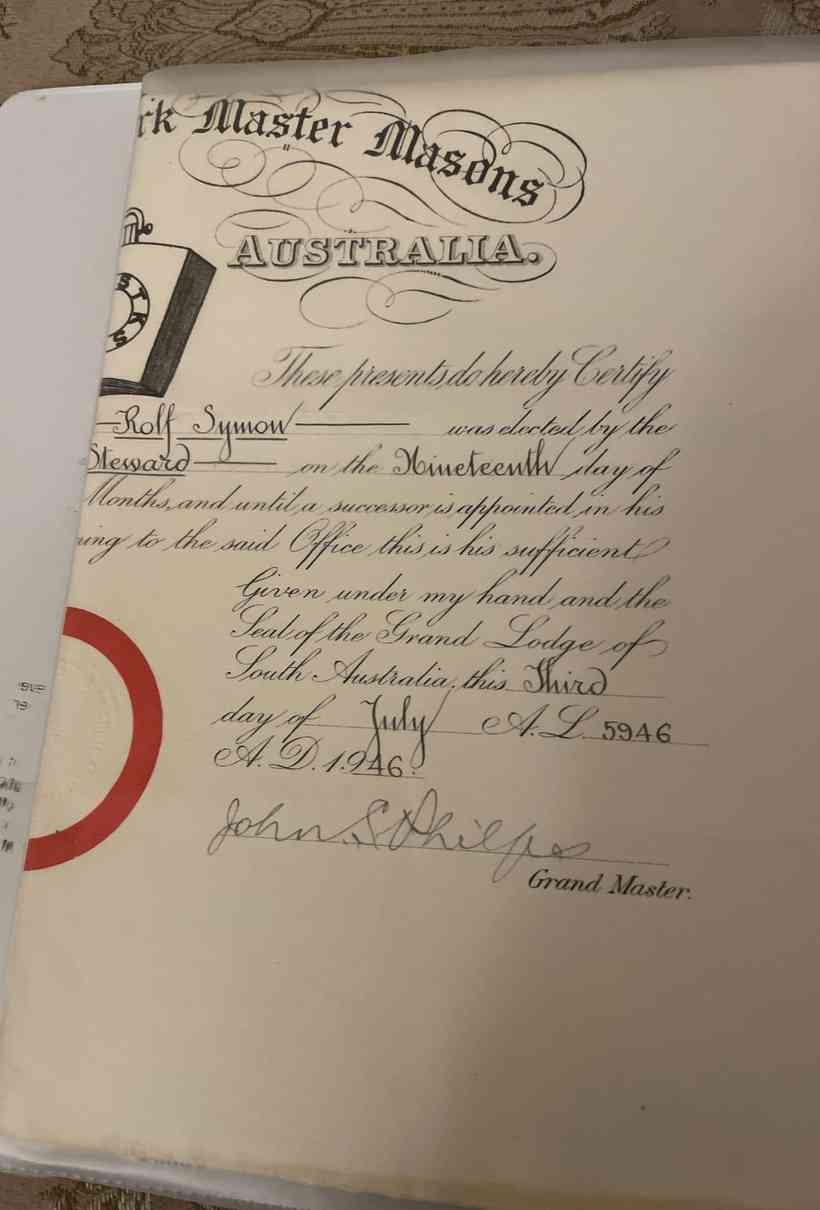 rk Master Masons
AUSTRALIA.
STKS
These presents do hereby Certify
Rolf Symon was elected by the
Steward on the Nineteenth day of
Months, and until a successor is appointed in his
ing to the said Office this is his sufficient
Given under my hand and the
Seal of the Grand Lodge of
South Australia, this Third
day of July A.L. 5946
A.D. 1946.
John S Philps
Grand Master.